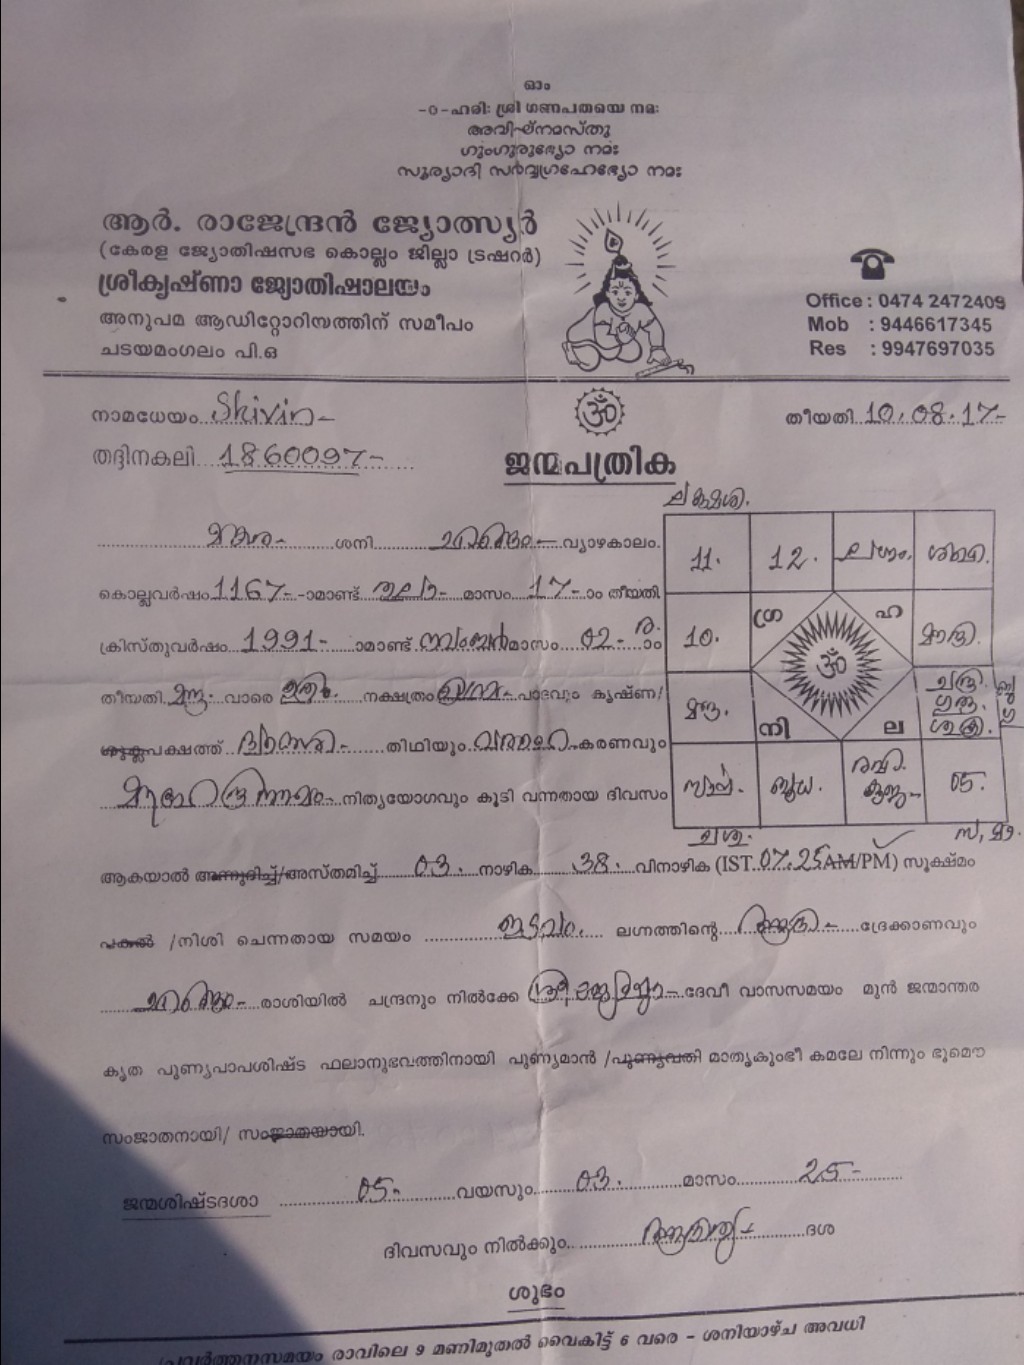 ഓം
-0-ഹരി: ശ്രീ ഗണപതയെ നമ:
അവിഘ്നമസ്തു
ഗുംഗുരുഭ്യോ നമ:
സൂര്യാദി സർവ്വഗ്രഹേഭ്യോ നമ:
ആർ. രാജേന്ദ്രൻ ജ്യോത്സ്യർ
(കേരള ജ്യോതിഷസഭ കൊല്ലം ജില്ലാ ട്രഷറർ)
ശ്രീകൃഷ്ണാ ജ്യോതിഷാലയം
അനുപമ ആഡിറ്റോറിയത്തിന് സമീപം
ചടയമംഗലം പി.ഒ
Office : 0474 2472409
Mob : 9446617345
Res : 9947697035
നാമധേയം Shivin-
തീയതി 10.08.17-
തദ്ദിനകലി 1860097-
ജന്മപത്രിക
മകര- ശനി ചിങ്ങം- വ്യാഴകാലം.
കൊല്ലവർഷം 1167- -ാമാണ്ട് തുലാ- മാസം 17- ാം തീയതി
ക്രിസ്തുവർഷം 1991- ാമാണ്ട് നവംബർ മാസം 02- ാം
തീയതി വാരെ ഉത്രം. നക്ഷത്രം പാദവും കൃഷ്ണ/
ശുക്ലപക്ഷത്ത് തിഥിയും കരണവും
നിത്യയോഗവും കൂടി വന്നതായ ദിവസം
11. 12. ലഗ്നം.
10. ഗ്ര ഹ
നി ല ചന്ദ്ര. ഗുരു. ശുക്ര.
ബുധ. രവി. കുജ- 05.
ആകയാൽ അന്നുദിച്ച്/അസ്തമിച്ച് 03. നാഴിക 38. വിനാഴിക (IST 07.25 AM/PM) സൂക്ഷ്മം
പകൽ /നിശി ചെന്നതായ സമയം ഇടവം. ലഗ്നത്തിന്റെ ദ്രേക്കാണവും
ചിങ്ങം- രാശിയിൽ ചന്ദ്രനും നിൽക്കേ ദേവീ വാസസമയം മുൻ ജന്മാന്തര
കൃത പുണ്യപാപശിഷ്ട ഫലാനുഭവത്തിനായി പുണ്യമാൻ /പുണ്യവതി മാതൃകുംഭീ കമലേ നിന്നും ഭൂമൌ
സംജാതനായി/ സംജാതയായി.
ജന്മശിഷ്ടദശാ 05- വയസും 03. മാസം 25-
ദിവസവും നിൽക്കും ദശ
ശുഭം
പ്രവർത്തനസമയം രാവിലെ 9 മണിമുതൽ വൈകിട്ട് 6 വരെ - ശനിയാഴ്ച അവധി